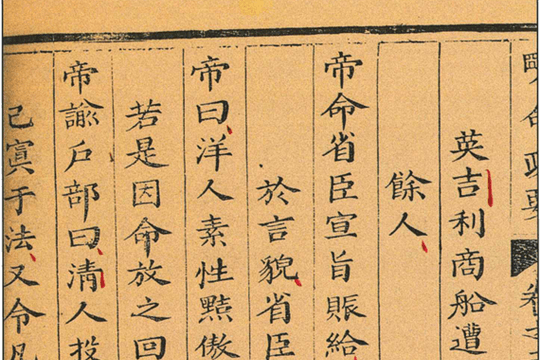 明命政要 卷之
英吉利商船遭
餘人
帝命省臣宣旨賑給
於言貌省臣
帝曰洋人素性黠傲
若是因命放之回
帝諭戶部曰清人投
已寘于法又令凡